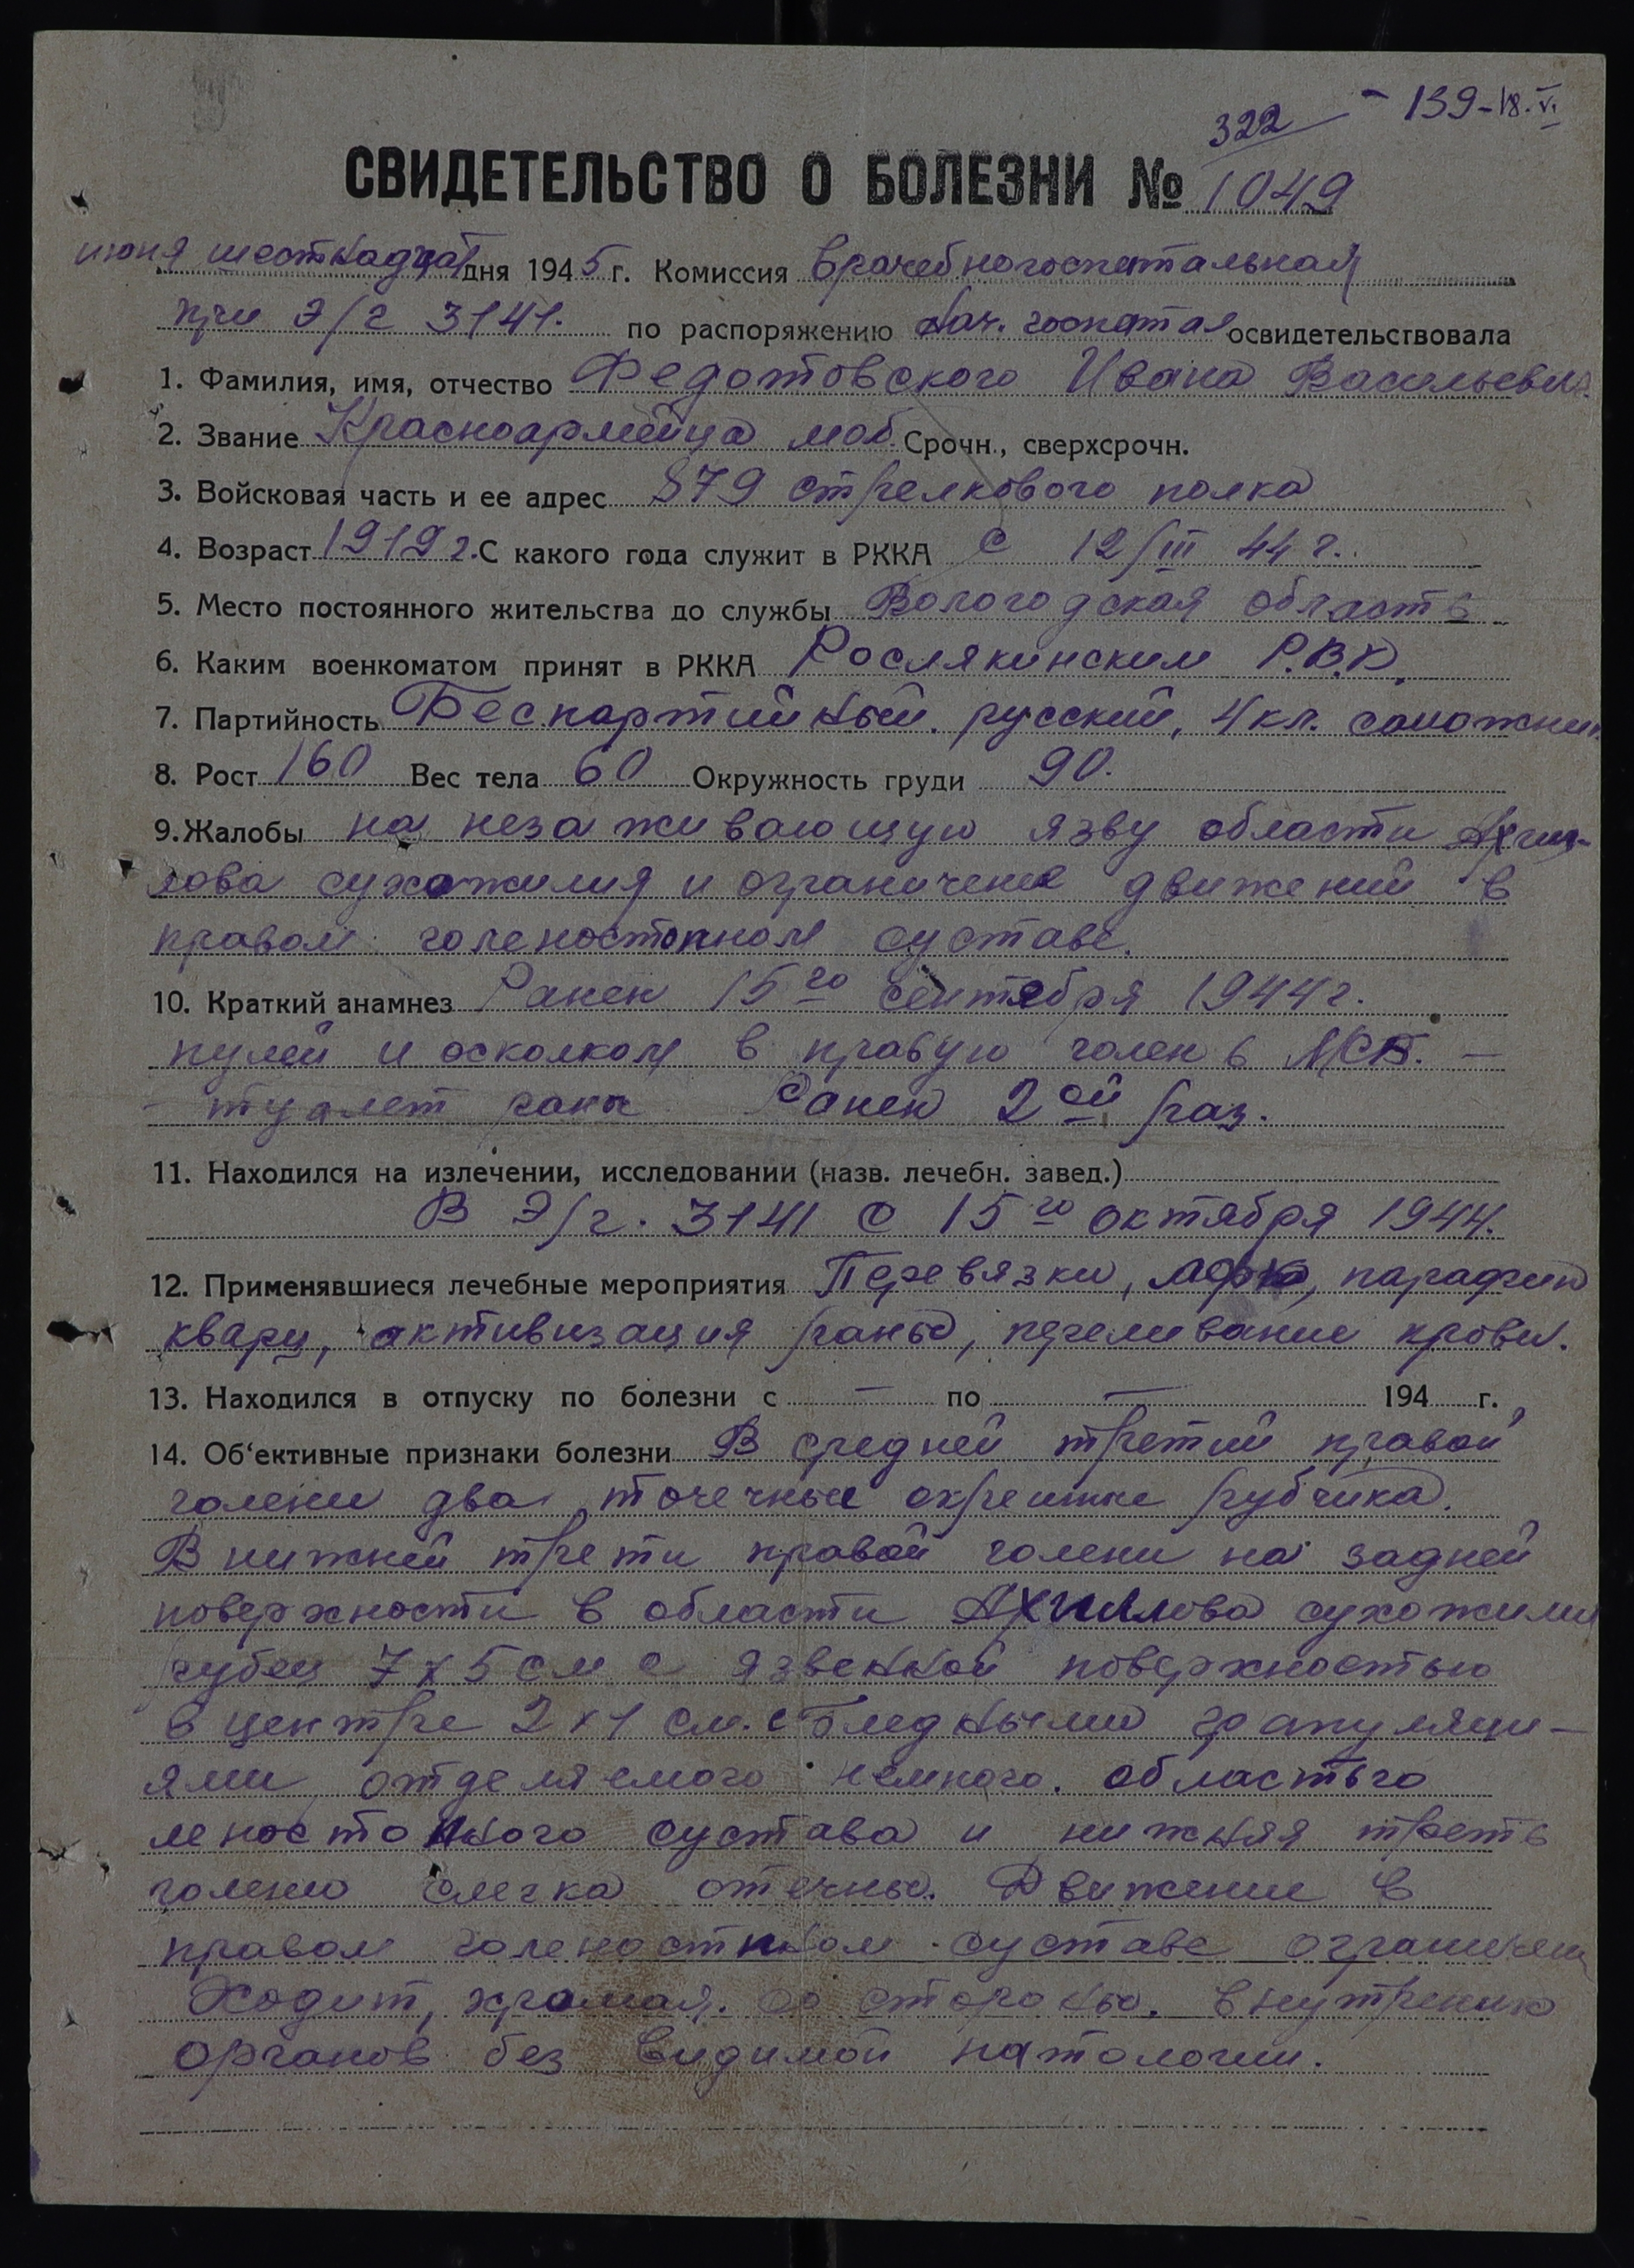 322 - 139-18.VI
СВИДЕТЕЛЬСТВО О БОЛЕЗНИ № 1049
июня шестнадцат дня 1945 г. Комиссия врачебногоспитальной
при Э/г 3141. по распоряжению Нач. госпиталя освидетельствовала
1. Фамилия, имя, отчество Федотовского Ивана Васильевич
2. Звание Красноармейца моб. Срочн., сверхсрочн.
3. Войсковая часть и ее адрес 879 стрелкового полка
4. Возраст 1919 г. С какого года служит в РККА с 12/III 44 г.
5. Место постоянного жительства до службы Вологодская область
6. Каким военкоматом принят в РККА Рослякинским Р.В.К.
7. Партийность Беспартийный. русский, 4 кл. сапожник
8. Рост 160 Вес тела 60 Окружность груди 90.
9. Жалобы на незаживающую язву области Ахил-
лова сухожилия и ограничение движений в
правом голеностопном суставе.
10. Краткий анамнез Ранен 15го сентября 1944 г.
пулей и осколком в правую голень МСБ. —
- туалет раны Ранен 2ой раз.
11. Находился на излечении, исследовании (назв. лечебн. завед.)
В Э/г. 3141 с 15го октября 1944.
12. Применявшиеся лечебные мероприятия Перевязки, лфк, парафин
кварц, активизация раны, переливание крови.
13. Находился в отпуску по болезни с — по — 194 г.
14. Об'ективные признаки болезни В средней третий правой
голени два точечные окрепшие рубчика.
В нижней трети правой голени на задней
поверхности в области Ахиллова сухожилия
рубец 7х5 см с язвенной поверхностью
в центре 2х1 см. с бледными грануляци-
ями отделяемого немного. область го
леностопного сустава и нижняя треть
голени слегка отечны. Движение в
правом голеностпном суставе ограничен
Ходит, хромая. со стороны. внутренних
органов без видимой патологии.